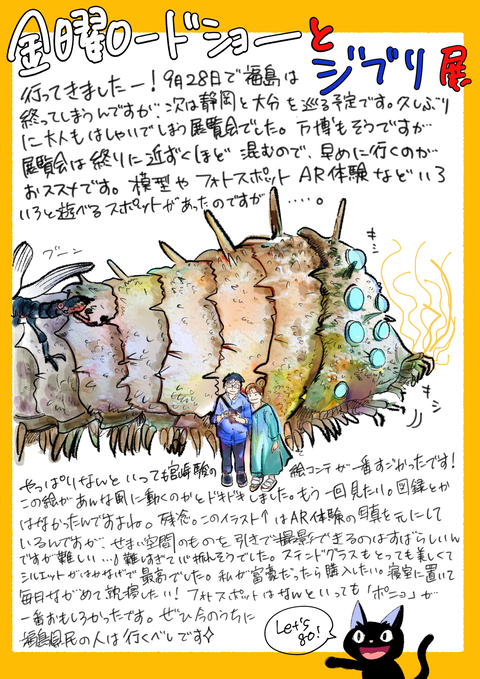 金曜ロードショーと
ジブリ展
行ってきましたー！9月28日で福島は
終ってしまうんですが、次は静岡と大分を巡る予定です。久しぶり
に大人もはしゃいでしまう展覧会でした。万博もそうですが
展覧会は終りに近ずくほど混むので、早めに行くのが
おススメです。模型やフォトスポットAR体験などいろ
いろと遊べるスポットがあったのですが……。
ブーン
キシ
キシ
やっぱりなんといっても宮崎駿の絵コンテが一番すごかったです！
この絵があんな風に動くのかとドキドキしました。もう一回見たい。図録とか
はなかったんですよね。残念。このイラスト↑はAR体験の写真を元にして
いるんですが、せまい空間のものを引きで撮影できるのはすばらしいん
ですが難しい…♪難しすぎて
そうでした。ステンドグラスもとっても美しくて
シルエットがはかなげで最高でした。私が富豪だったら購入したい。寝室に置いて
毎日ながめて
したい！フォトスポットはなんといっても「ポニョ」が
一番おもしろかったです。ぜひ今のうちに
福島県民の人は行くべしです
Let's go!